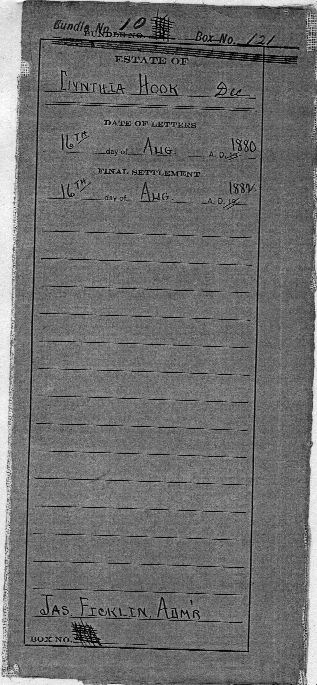 Bundle No. 10 Box No. 121
BUNDLE NO.
ESTATE OF
Cynthia Hook De
DATE OF LETTERS
16TH day of Aug. A. D. 1880
FINAL SETTLEMENT
16TH day of Aug. A. D. 1882
Jas Ficklin, Adm'r
BOX NO.